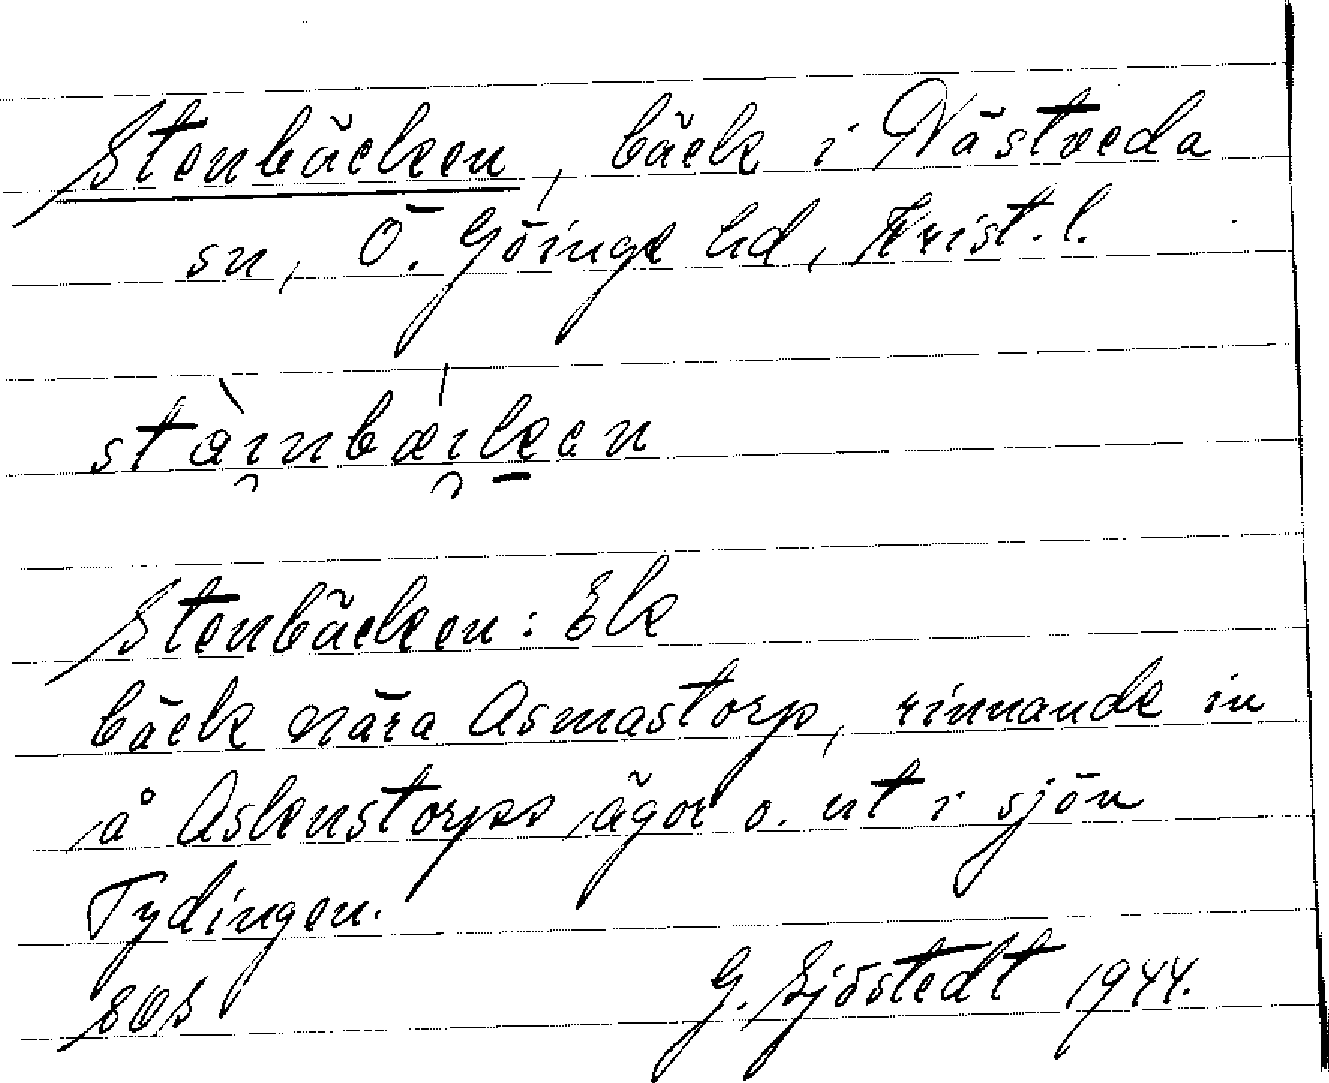 Stenbäcken, bäck i Västveda
sn, Ö. Göinge hd, Krist. l.
stæ̀i̯nbæi̯ken
Stenbäcken: Ek
bäck nära Asmastorp, rinnande in
å Askenstorps ägor o. ut i sjön
Tydingen.
SOS G. Sjöstedt 1944.